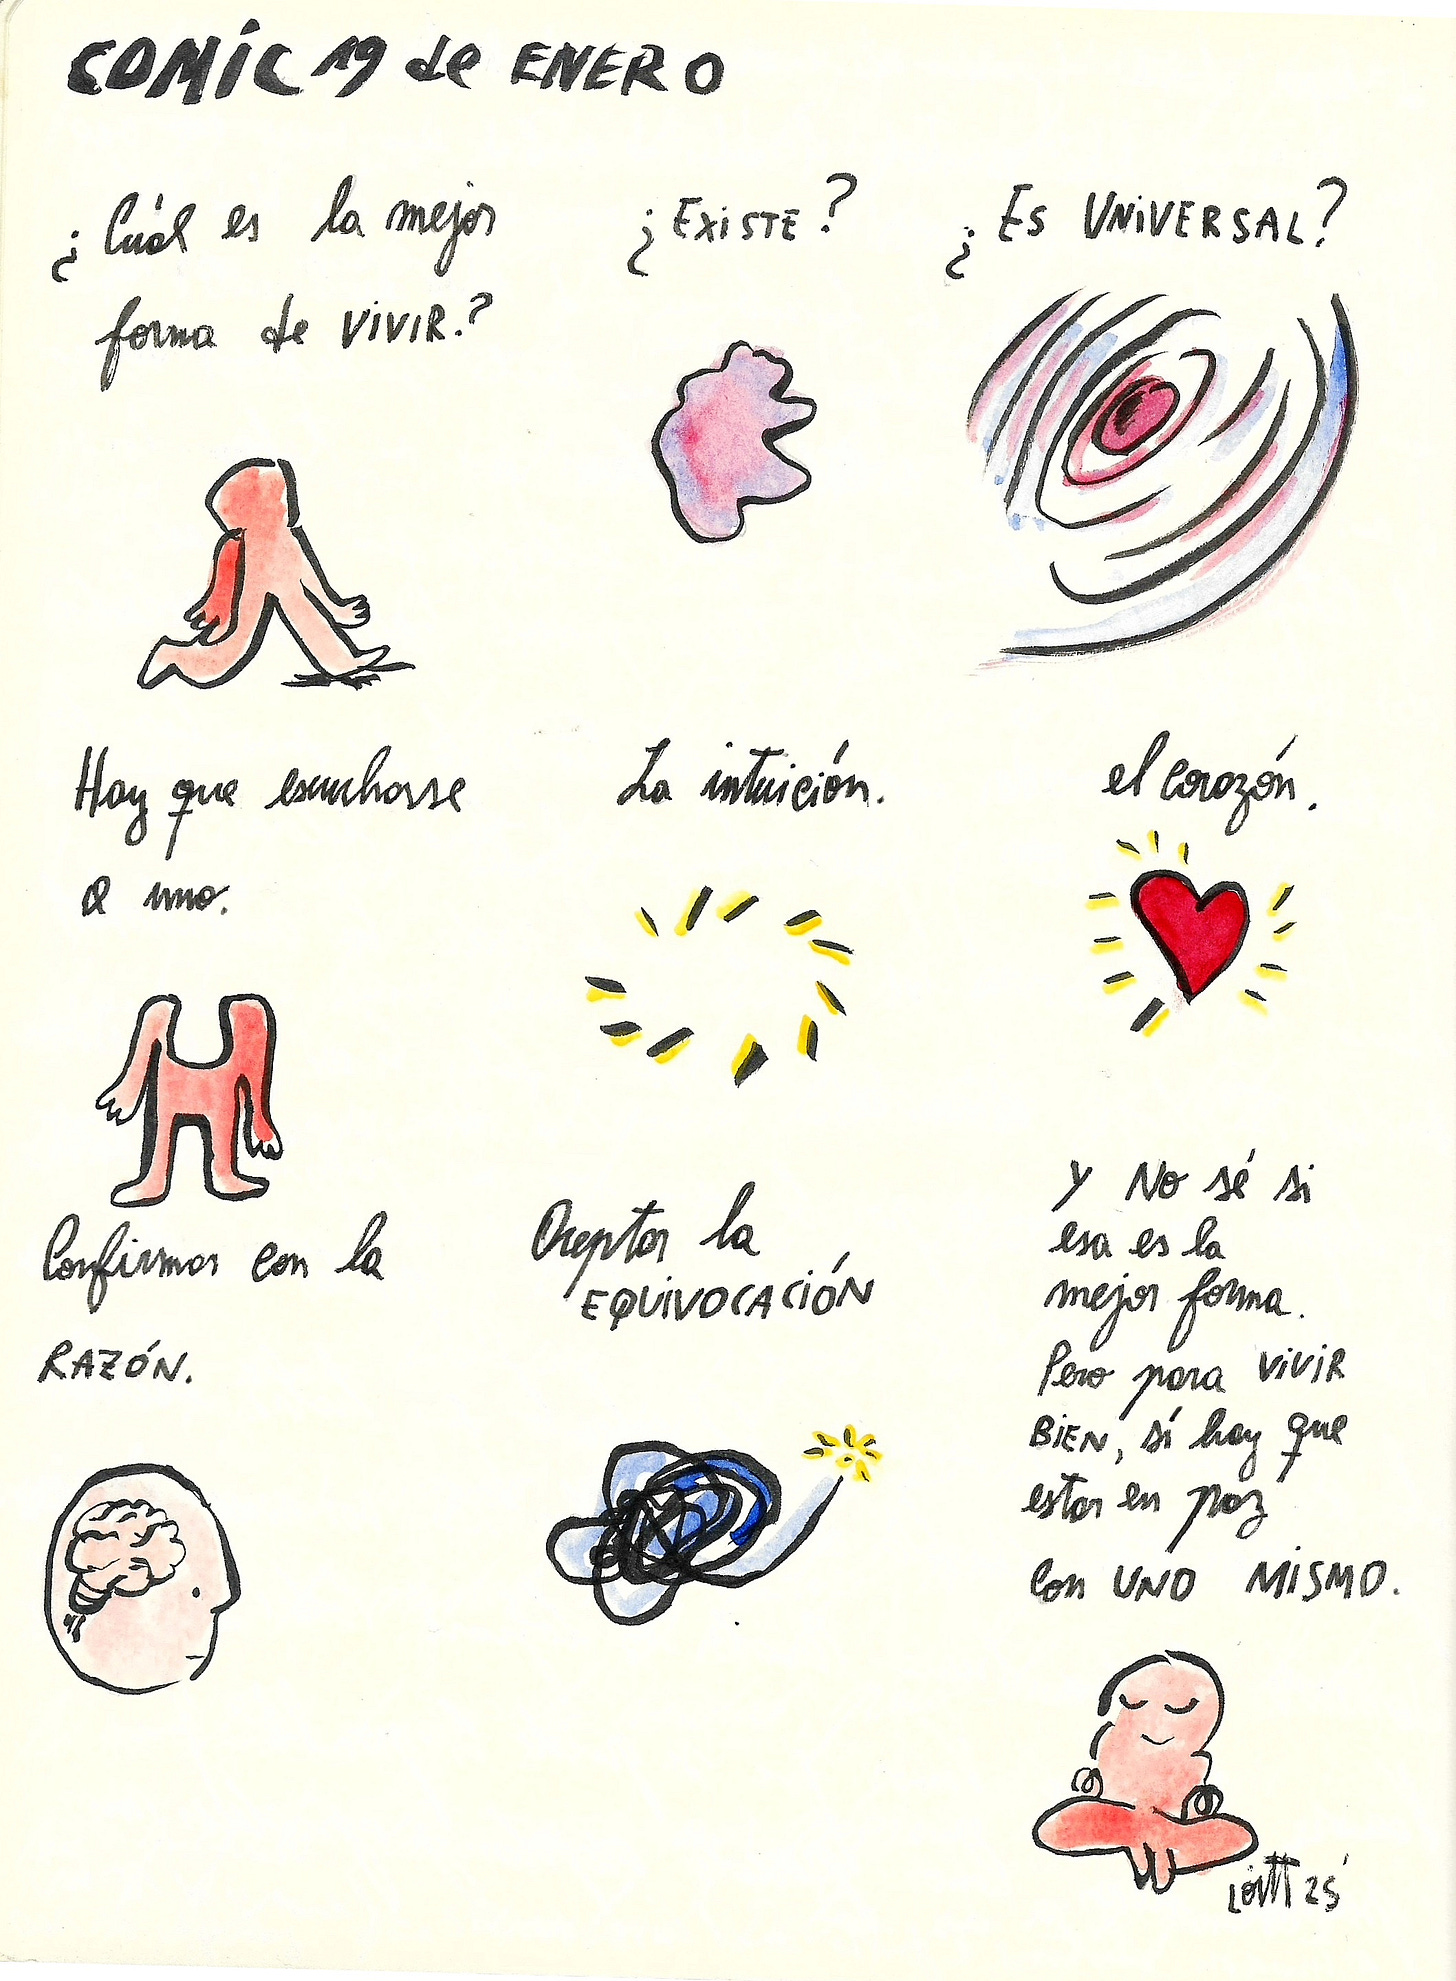 COMIC 19 de ENERO
¿Cuál es la mejor
forma de VIVIR.?
¿EXISTE?
¿ES UNIVERSAL?
Hay que escucharse
a uno.
La intuición.
el corazón.
Confirmar con la
RAZÓN.
Aceptar la
EQUIVOCACIÓN
Y No sé si
esa es la
mejor forma.
Pero para VIVIR
BIEN, sí hay que
estar en paz
con UNO MISMO.
25'